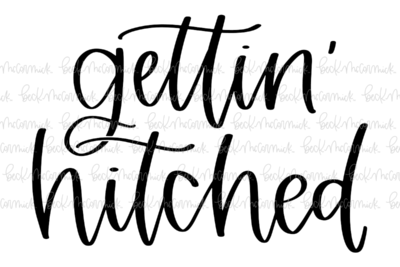 gettin'
hitched